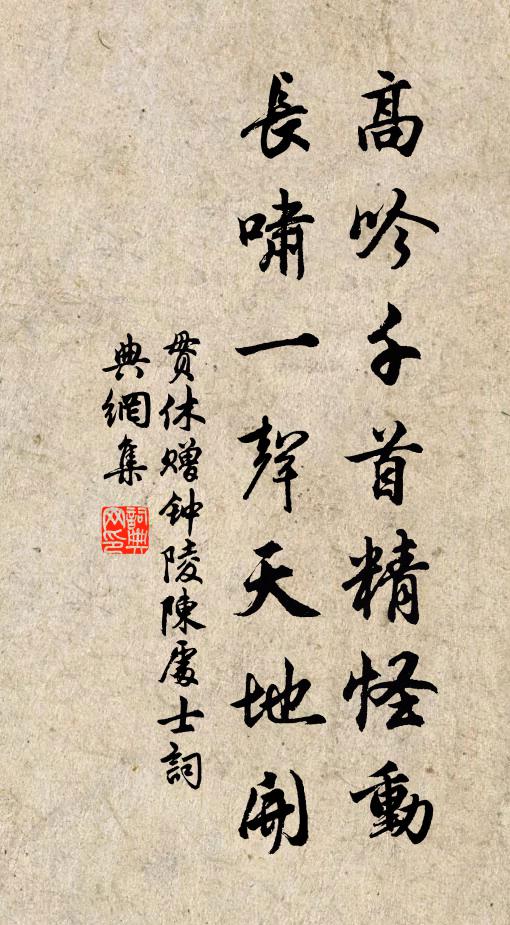 高吟千首精怪動
長嘯一聲天地開
貫休贈钟陵陳處士詞
典網集
詞典
网印